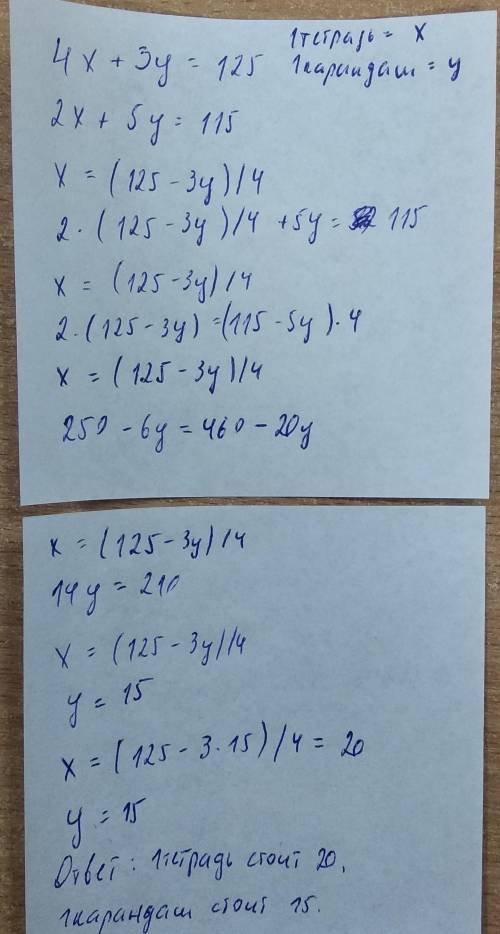 1тетрадь = x
4x + 3y = 125
1карандаш = y
2x + 5y = 115
x = (125 - 3y)/4
2·(125 - 3y)/4 + 5y = 115
x = (125 - 3y)/4
2·(125 - 3y) = (115 - 5y)·4
x = (125 - 3y)/4
250 - 6y = 460 - 20y
x = (125 - 3y)/4
14y = 210
x = (125 - 3y)/4
y = 15
x = (125 - 3·15)/4 = 20
y = 15
Ответ: 1тетрадь стоит 20,
1карандаш стоит 15.